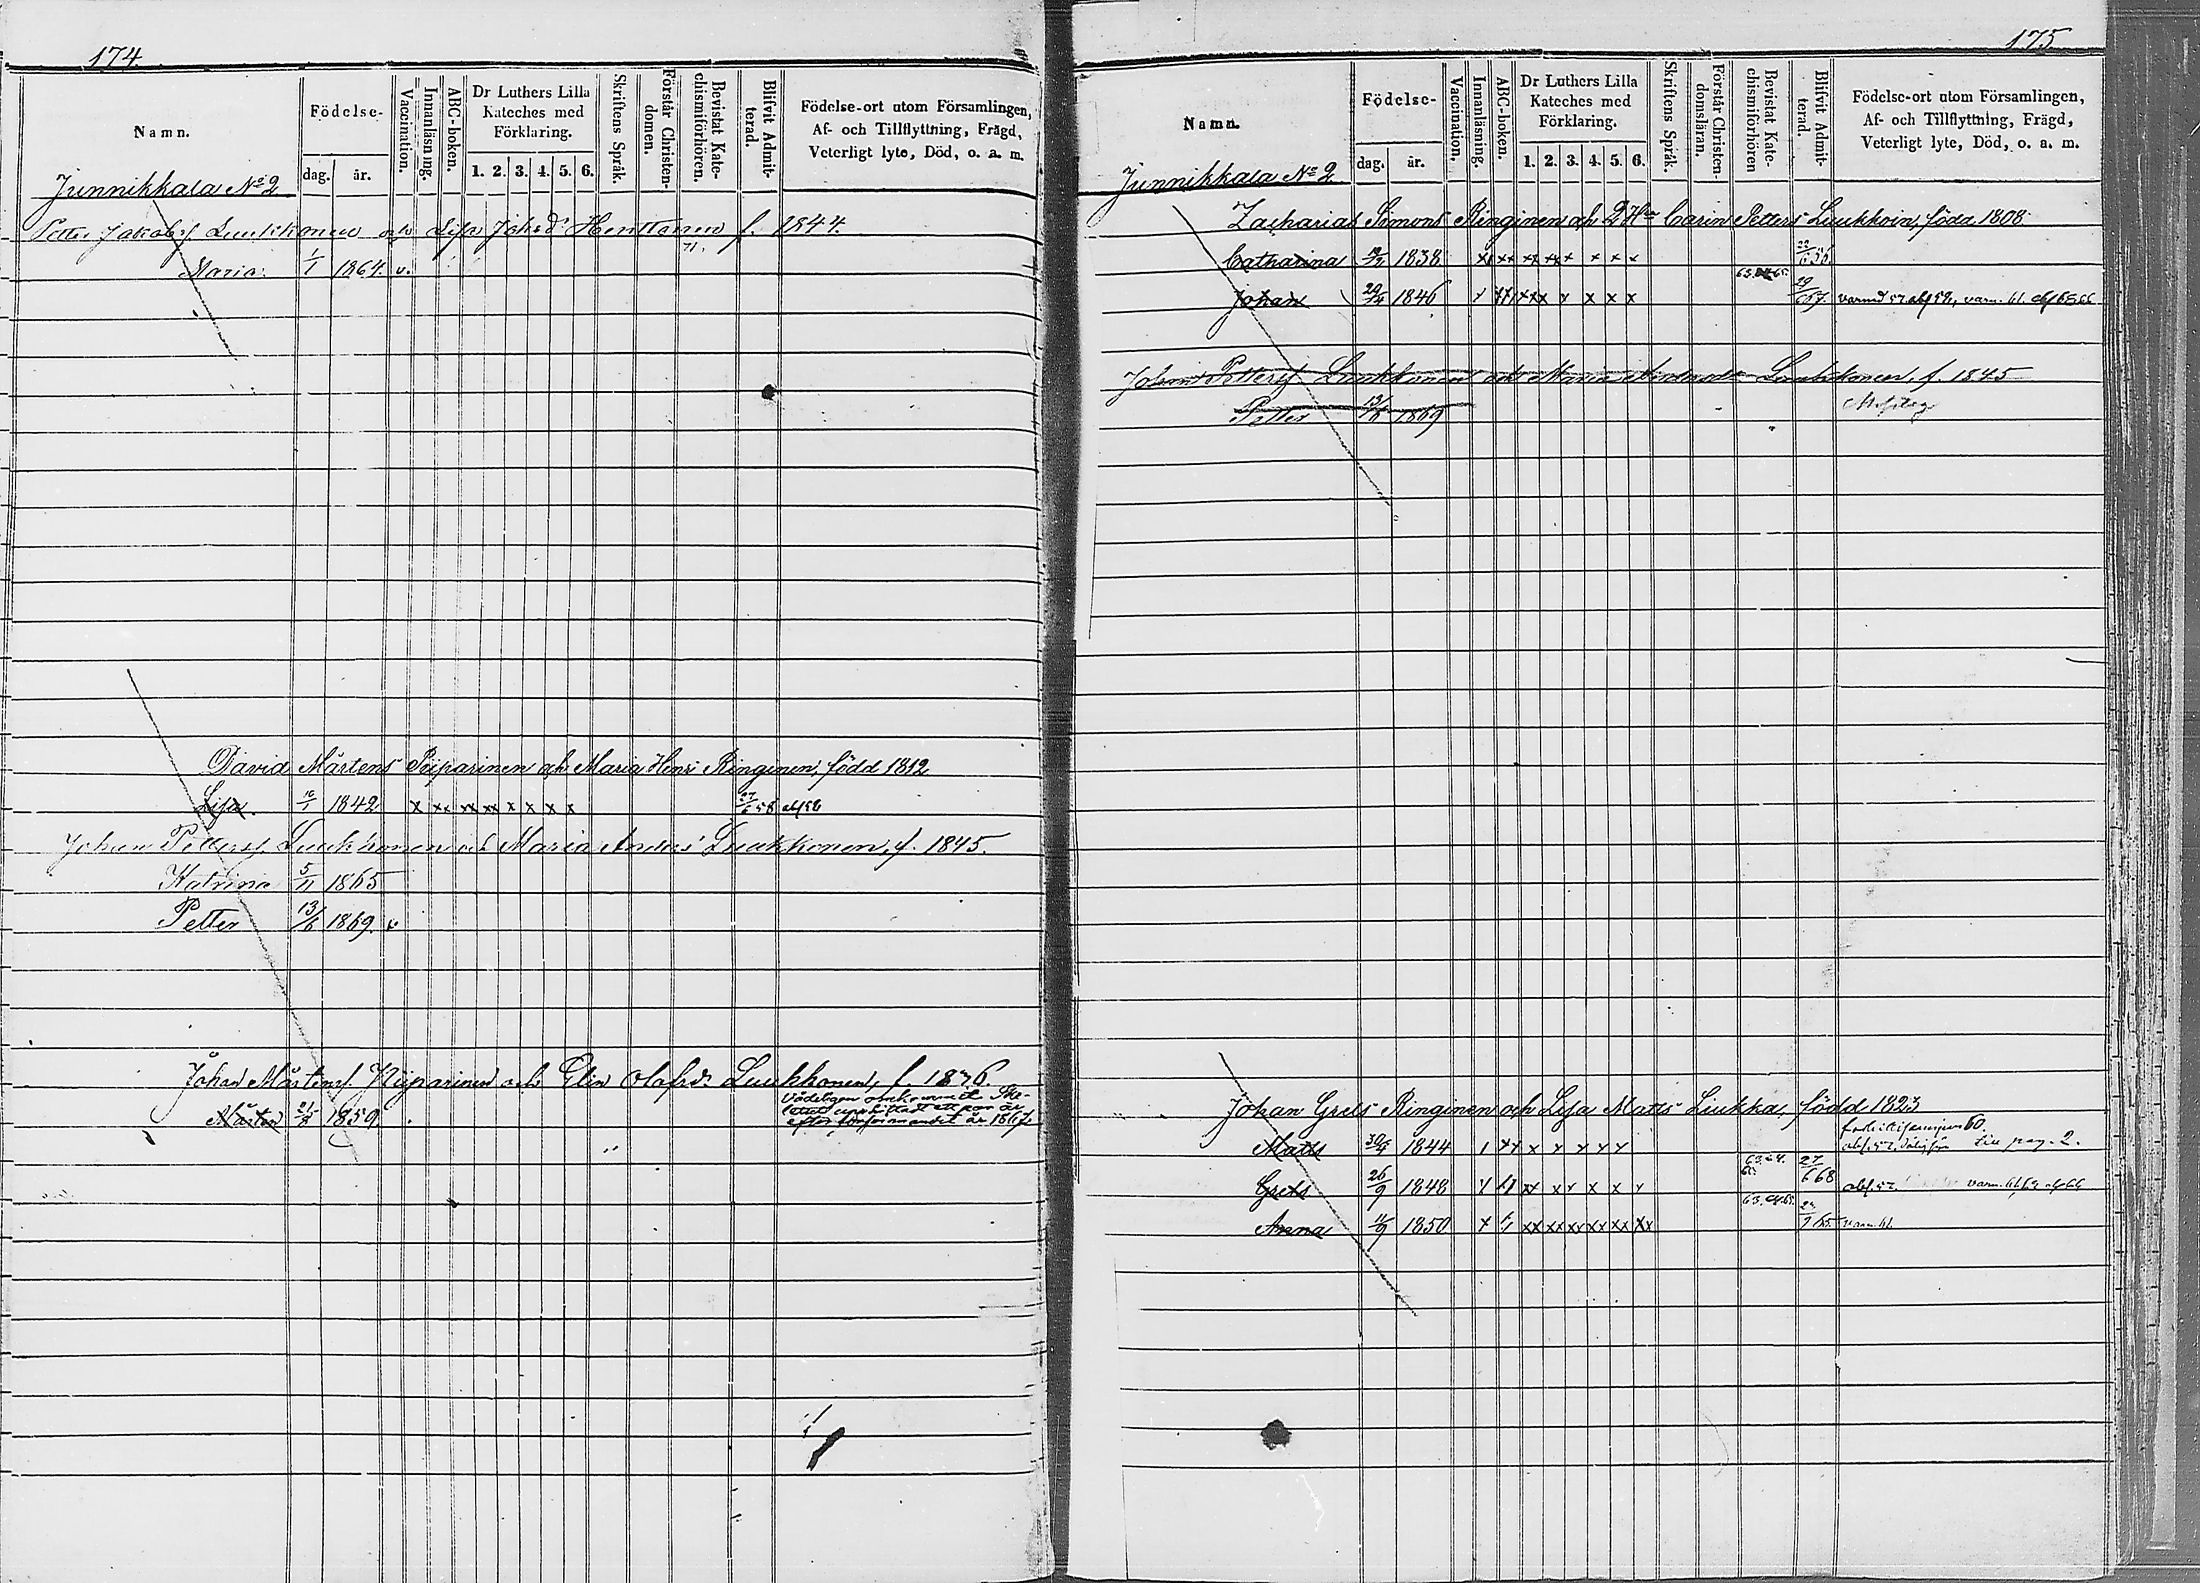 174.
Namn.
Födelse-
dag. år.
Vaccination.
Innanläsning.
ABC-boken.
Dr Luthers Lilla
Kateches med
Förklaring.
1. 2. 3. 4. 5. 6.
Skriftens Språk.
Förstår Christen-
domen.
Bevistat Kate-
chismiförhören.
Blifvit Admit-
terad.
Födelse-ort utom Församlingen,
Af- och Tillflyttning, Frägd,
Veterligt lyte, Död, o. a. m.
Junnikkala No 2
Petter Jakobs. Luukkonen och Lisa Johsd. Henttonen f. 1844.
71.
Maria. 1/1 1864. v.
David Mårtens Piiparinen och Maria Henr. Ringinen, född 1812
Lisa. 10/1 1842 x xx xx xx x x x x 27/6 58 abs 58
Johan Petterss. Luukkonen och Maria Anders Luukkonen, f. 1845.
Katrina 5/11 1865
Petter 13/6 1869. v.
Johan Mårtenss. Piiparinen och Elin Olofsd. Luukkonen, f. 1836.
Mårten 1859.
efter försvinnandet år 1867.
175
Namn.
Födelse-
dag. år.
Vaccination.
Innanläsning.
ABC-boken.
Dr Luthers Lilla
Kateches med
Förklaring.
1. 2. 3. 4. 5. 6.
Skriftens Språk.
Förstår Christen-
domsläran.
Bevistat Kate-
chismiförhören
Blifvit Admit-
terad.
Födelse-ort utom Församlingen,
Af- och Tillflyttning, Frägd,
Veterligt lyte, Död, o. a. m.
Junnikkala No 2
Zacharias Simons Ringinen och 2 H:u Carin Petters Luukkoin, född 1808
Catharina 1838 xx xx xx xx x x x x 22/6 56
Johan 1846 x xx xxx x x x x 29/6 67.
Johan Petterss. Luukkonen och Maria Andersd. Luukkonen, f. 1845
Petter 13/6 1869
Johan Grels Ringinen och Lisa Matts Liukka, född 1823
Matts 30/4 1844 till pag. 2.
Grels 26/9 1848 27/6 68
Anna 11/9 1850 x xx xx xx xx xx xx